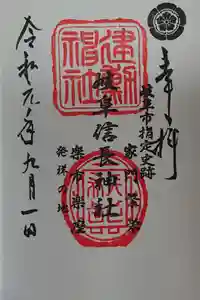 奉拝
岐阜市指定史跡
建勲神社
岐阜信長神社
楽市楽座
発祥の地
令和元年九月一日